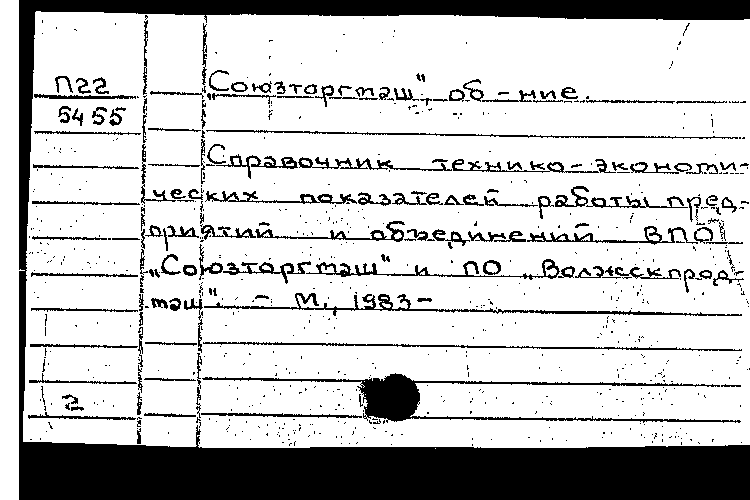 П22
5455
„Союзторгмаш", об-ние.
Справочник технико-экономи-
ческих показателей работы пред-
приятий и объединений ВПО
„Союзторгмаш" и ПО „Волжскпрод-
маш". – М., 1983–
2